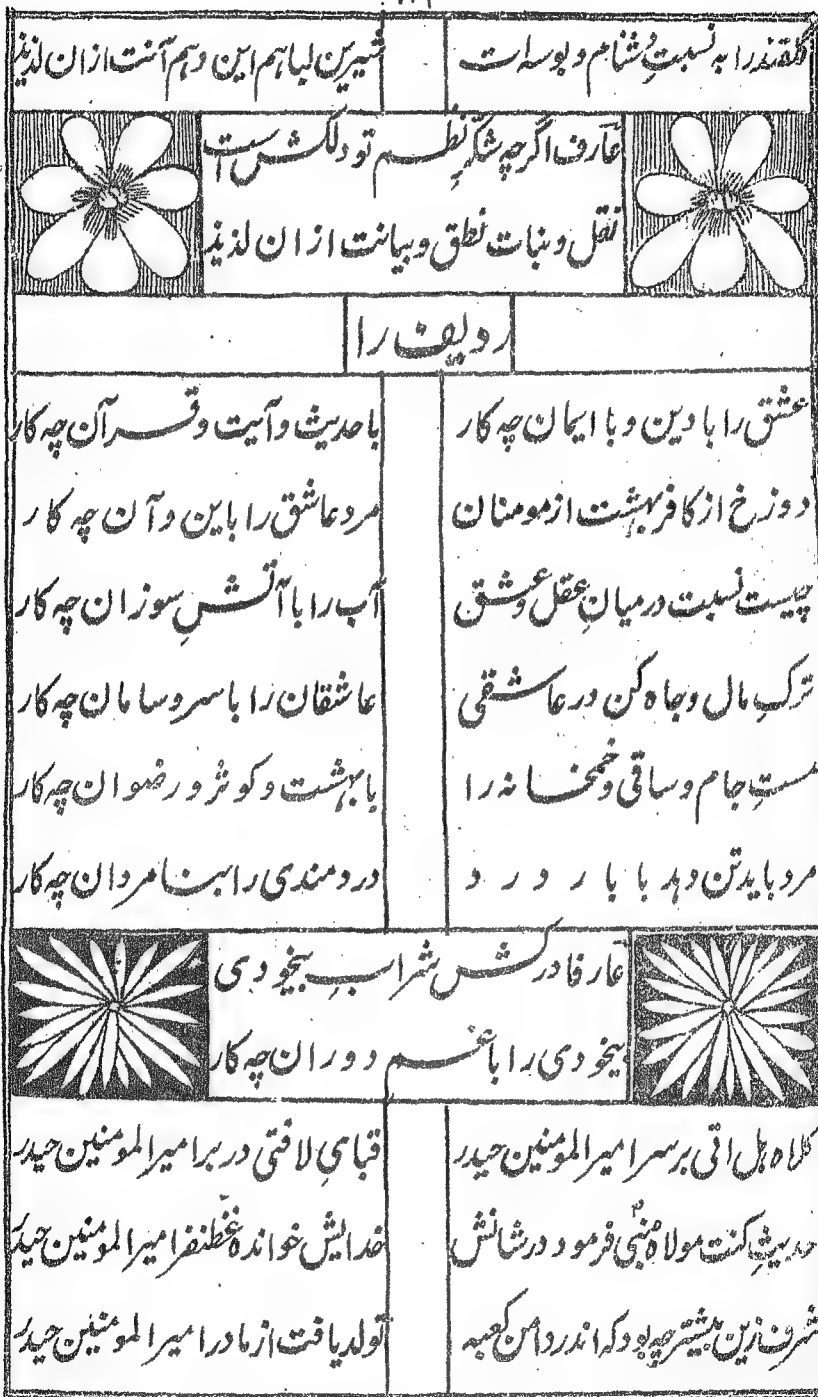 گلقند را به نسبتِ دشنام و بوسه ات شیرین لبا هم این و هم آنت ازان لذیذ
عارف اگرچه شکّرِ نظم تو دلکش است
نقل و نبات نطق و بیانت ازان لذیذ
ردیف را
عشق را با دین و با ایمان چه کار با حدیث و آیت و قرآن چه کار
دوزخ از کافر بهشت از مومنان مرد عاشق را باین و آن چه کار
چیست نسبت درمیانِ عقل و عشق آب را با آتشِ سوزان چه کار
ترکِ مال و جاه کن در عاشقی عاشقان را با سر و سامان چه کار
مستِ جام و ساقی و خمخانه را با بهشت و کوثر و رضوان چه کار
مرد باید تن دهد با بار درد دردمندی را بنامردان چه کار
عارفا درکش شرابِ بیخودی
بیخودی را با غم دوران چه کار
کلاه هل اتی بر سر امیرالمومنین حیدر قبایِ لافتی در بر امیرالمومنین حیدر
حدیثِ کنت مولاه نبی فرمود در شانش خدایش خوانده غظنفر امیرالمومنین حیدر
شرف زین بیشتر چه بود که اندر دامن کعبه تولد یافت از مادر امیرالمومنین حیدر